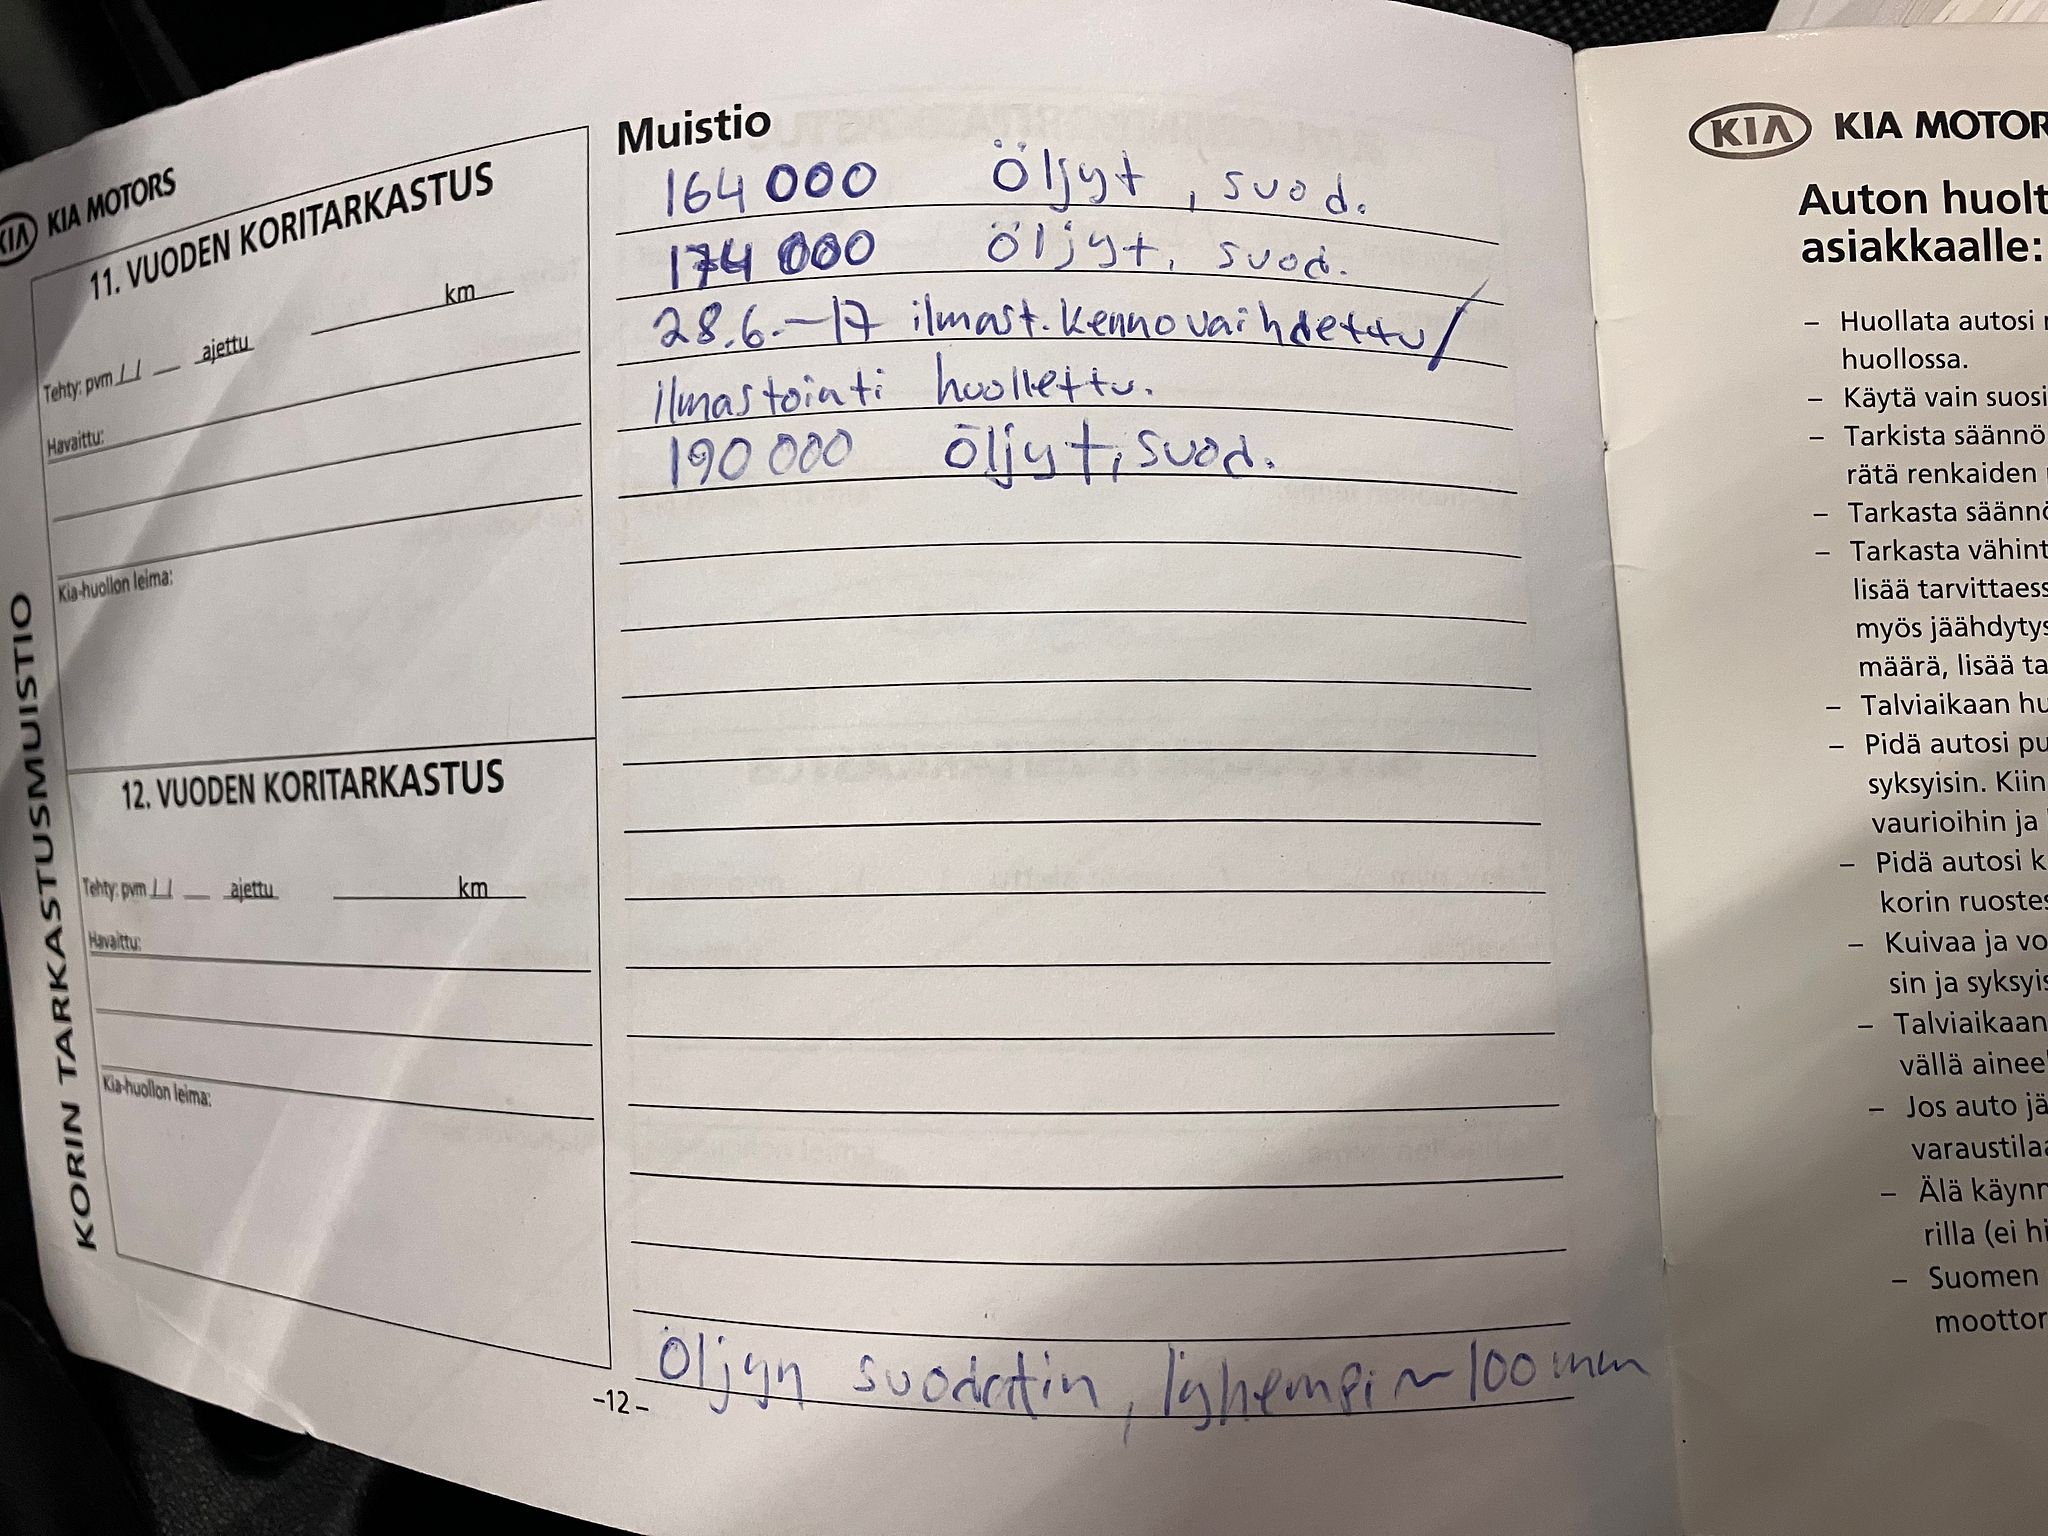 KIA KIA MOTORS
11. VUODEN KORITARKASTUS
km
Tehty: pvm / / ajettu
Havaittu:
Kia-huollon leima:
12. VUODEN KORITARKASTUS
Tehty: pvm / / ajettu km
Havaittu:
Kia-huollon leima:
KORIN TARKASTUSMUISTIO
Muistio
164 000 Öljyt, suod.
174 000 Öljyt, suod.
28.6.-17 ilmast. kenno vaihdettu/
ilmastointi huollettu.
190 000 Öljyt, suod.
Öljyn suodatin, lyhempi ~100mm
-12-
KIA KIA MOTOR
Auton huolt
asiakkaalle:
– Huollata autosi
huollossa.
– Käytä vain suosi
– Tarkista säännö
rätä renkaiden
– Tarkasta säännö
– Tarkasta vähint
lisää tarvittaess
myös jäähdytys
määrä, lisää ta
– Talviaikaan hu
– Pidä autosi pu
syksyisin. Kiin
vaurioihin ja
– Pidä autosi k
korin ruostes
– Kuivaa ja vo
sin ja syksyis
– Talviaikaan
vällä aineel
– Jos auto jä
varaustilaa
– Älä käynn
rilla (ei hi
– Suomen
moottor